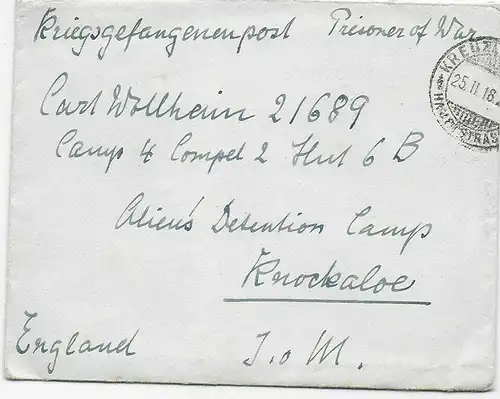 Kriegsgefangenenpost Prisoner of War
KREUZ
25.II.16.
STRAS
Carl Wollheim 21689
Camp 4 Compd 2 Hut 6 B
Aliens Detention Camp
Knockaloe
England I. o M.